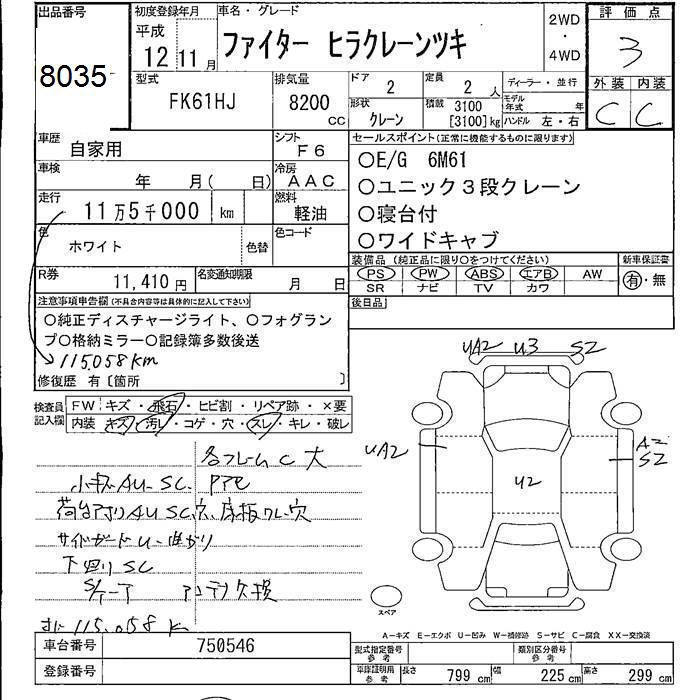 出品番号 初度登録年月 車名・グレード 2WD 評価点
8035 平成 12 11月 ファイター ヒラクレーンツキ ・ 4WD 3
型式 FK61HJ 排気量 8200 CC ドア 2 定員 2 人 ディーラー・並行 外装 内装
形状 クレーン 積載 3100 [3100]kg モデル年式 年 ハンドル 左・右 C C
車歴 自家用 シフト F6 セールスポイント(正常に機能するものに限ります)
車検 年 月( 日) 冷房 AAC ○E/G 6M61
走行 11万5千000 km 燃料 軽油 ○ユニック3段クレーン
○寝台付
色 ホワイト 色替 色コード ○ワイドキャブ
R券 11,410円 名変通知期限 月 日 装備品(純正品に限り○をつけてください) 新車保証書
PS PW ABS エアB AW 有・無
SR ナビ TV カワ
注意事項申告欄(不具合内容等は具体的に記入して下さい) 後日品
○純正ディスチャージライト、○フォグラン
プ○格納ミラー○記録簿多数後送
115,058km
修復歴 有〔箇所 〕
検査員記入欄 FW キズ・飛石・ヒビ割・リペア跡・×要
内装 キズ・汚レ・コゲ・穴・スレ・キレ・破レ
UA2 U3 S2
UA2 A2 S2
U2
各フレームC大
小キズAU SC. Pアセ
荷台アオリAU SC穴、床板ワレ穴
サイドガードU・曲がり
下回りSC
アンテナ欠損
115,058K
スペア
A－キズ E－エクボ U－凹み W－補修跡 S－サビ C－腐食 XX－交換済
車台番号 750546 型式指定番号 参考 類別区分番号 参考
登録番号 車庫証明用 参考 長さ 799 cm 幅 225 cm 高さ 299 cm